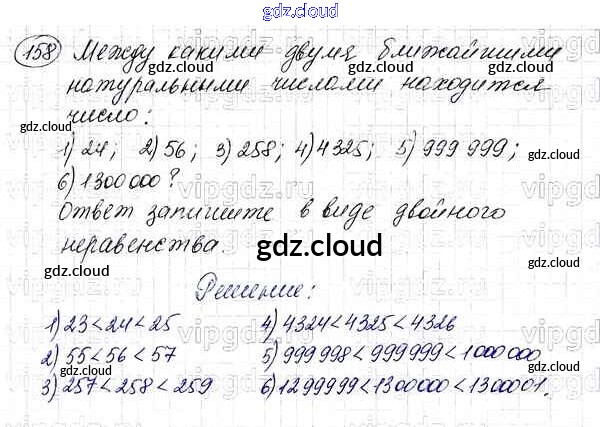 gdz.cloud
158 Между какими двумя ближайшими
gdz.cloud gdz.cloud
натуральными числами находится
число:
gdz.cloud gdz.cloud
1) 24; 2) 56; 3) 258; 4) 4325; 5) 999 999;
gdz.cloud
6) 1300 000?
vipgdz.ru vipgdz.ru vipgdz
Ответ запишите в виде двойного
неравенства.
gdz.cloud
gdz.cloud gdz.cloud
Решение:
1) 23<24<25 4) 4324<4325<4326
vipgdz.ru vipgdz.ru vipgdz
2) 55<56<57 5) 999 998<999 999<1 000 000
gdz.cloud gdz.cloud gdz.cloud
3) 257<258<259 6) 1299999<1300000<1300001.